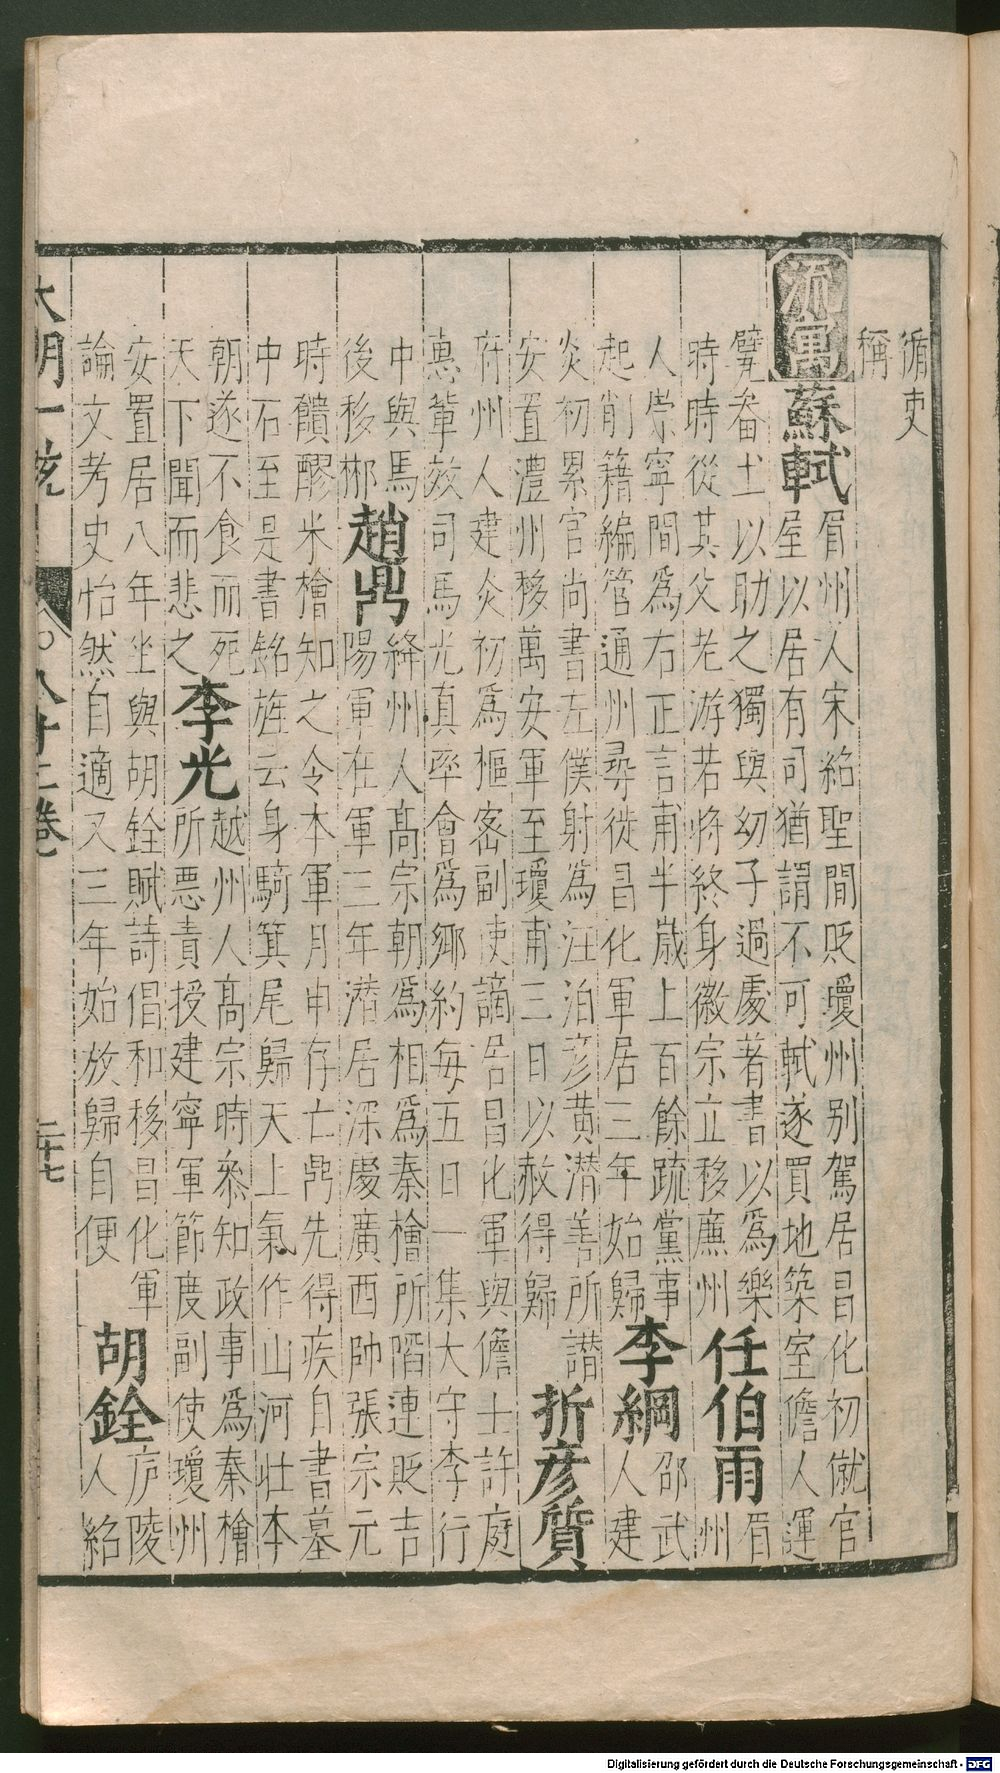 循吏
稱
流寓
蘇軾
眉州人宋紹聖間貶瓊州别駕居昌化初僦官
屋以居有司猶謂不可軾遂買地築室儋人運
甓畚土以助之獨與幼子過處著書以爲樂
時時從其父老游若將終身徽宗立移廉州
任伯雨
眉
州
人崇寧間爲右正言甫半歲上百餘疏黨事
起削籍編管通州尋徙昌化軍居三年始歸
李綱
邵武
人建
炎初累官尚書左僕射爲汪泊彦黄潜善所譖
安置澧州移萬安軍至瓊甫三日以赦得歸
折彦質
府州人建炎初爲樞密副使謫居昌化軍與儋士許庭
惠輩效司馬光真率會爲鄉約每五日一集大守李行
中與馬
後移郴
趙鼎
絳州人髙宗朝爲相爲秦檜所陷連貶吉
陽軍在軍三年潜居深慶廣西帥張宗元
時饋醪米檜知之令本軍月申存亡鼎先得疾自書墓
中石至是書銘旌云身騎箕尾歸天上氣作山河壯本
朝遂不食而死
天下聞而悲之
李光
越州人髙宗時叅知政事爲秦檜
所惡責授建寧軍節度副使瓊州
安置居八年坐與胡銓賦詩倡和移昌化軍
論文考史怡然自適又三年始放歸自便
胡銓
庐陵
人紹
大明一統
八十二卷
二十七
Digitalisierung gefördert durch die Deutsche Forschungsgemeinschaft - DFG